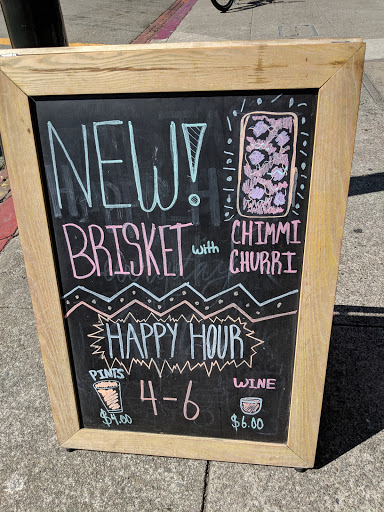 NEW!
BRISKET with CHIMMI CHURRI
HAPPY HOUR
PINTS 4-6 WINE
$4.00 $6.00